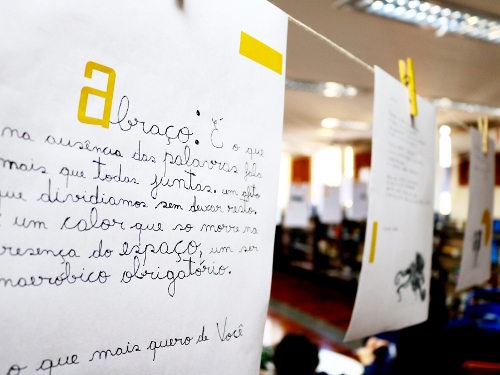 abraço: É o que
na ausência das palavras fala
mais que todas juntas. um afeto
que dividiamos sem deixar restos
é um calor que so morre na
presença do espaço, um ser
anaeróbico obrigatório.
o que mais quero de Você